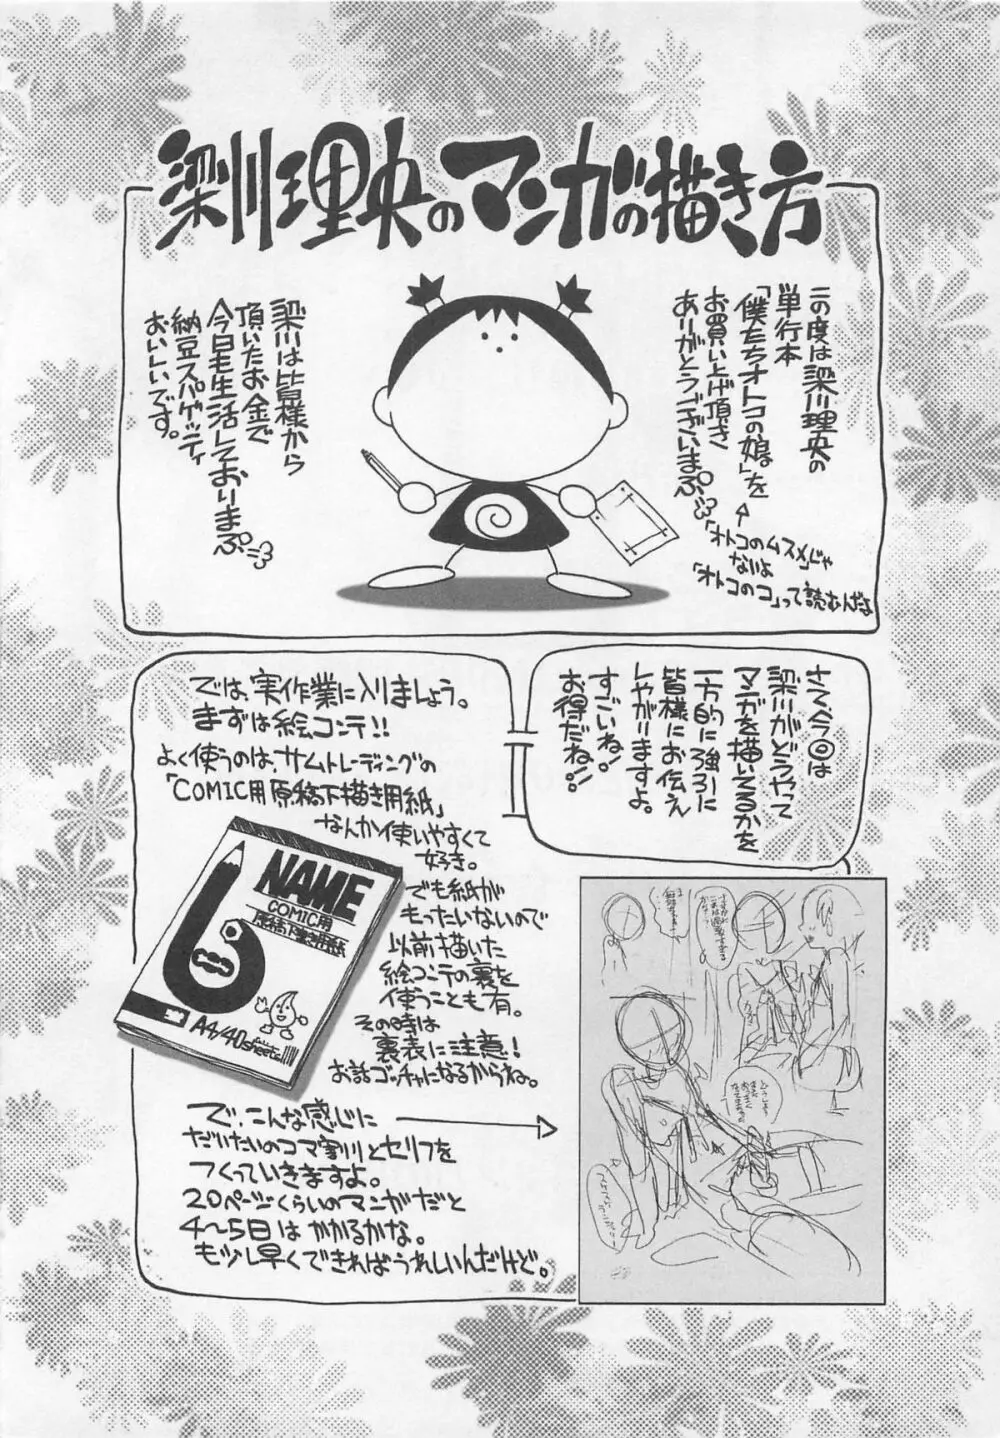 梁川理央のマンガの描き方
この度は梁川理央の
単行本
「僕たちオトコの娘」を
お買い上げ頂き
ありがとうございまぷ
「オトコのムスメ」じゃ
ないよ
「オトコのコ」って読むんだよ
梁川は皆様から
頂いたお金で
今日も生活しておりまぷ
納豆スパゲッティ
おいしいです。
さて、今回は
梁川がどうやって
マンガを描いてるかを
一方的に強引に
皆様にお伝え
しやがりますよ。
すごいね!
お得だね!!
では、実作業に入りましょう。
まずは絵コンテ!!
よく使うのは、サムトレーディングの
「COMIC用原稿下描き用紙」
なんか使いやすくて
好き。
でも紙が
もったいないので
以前描いた
絵コンテの裏を
使うことも有。
その時は
裏表に注意!
お話ゴッチャになるからね。
NAME
COMIC用
原稿下書き用紙
A4/40sheets
で、こんな感じに
だいたいのコマ割りとセリフを
つくっていきますよ。
20ページくらいのマンガだと
4〜5日はかかるかな。
も少し早くできればうれしいんだけど。